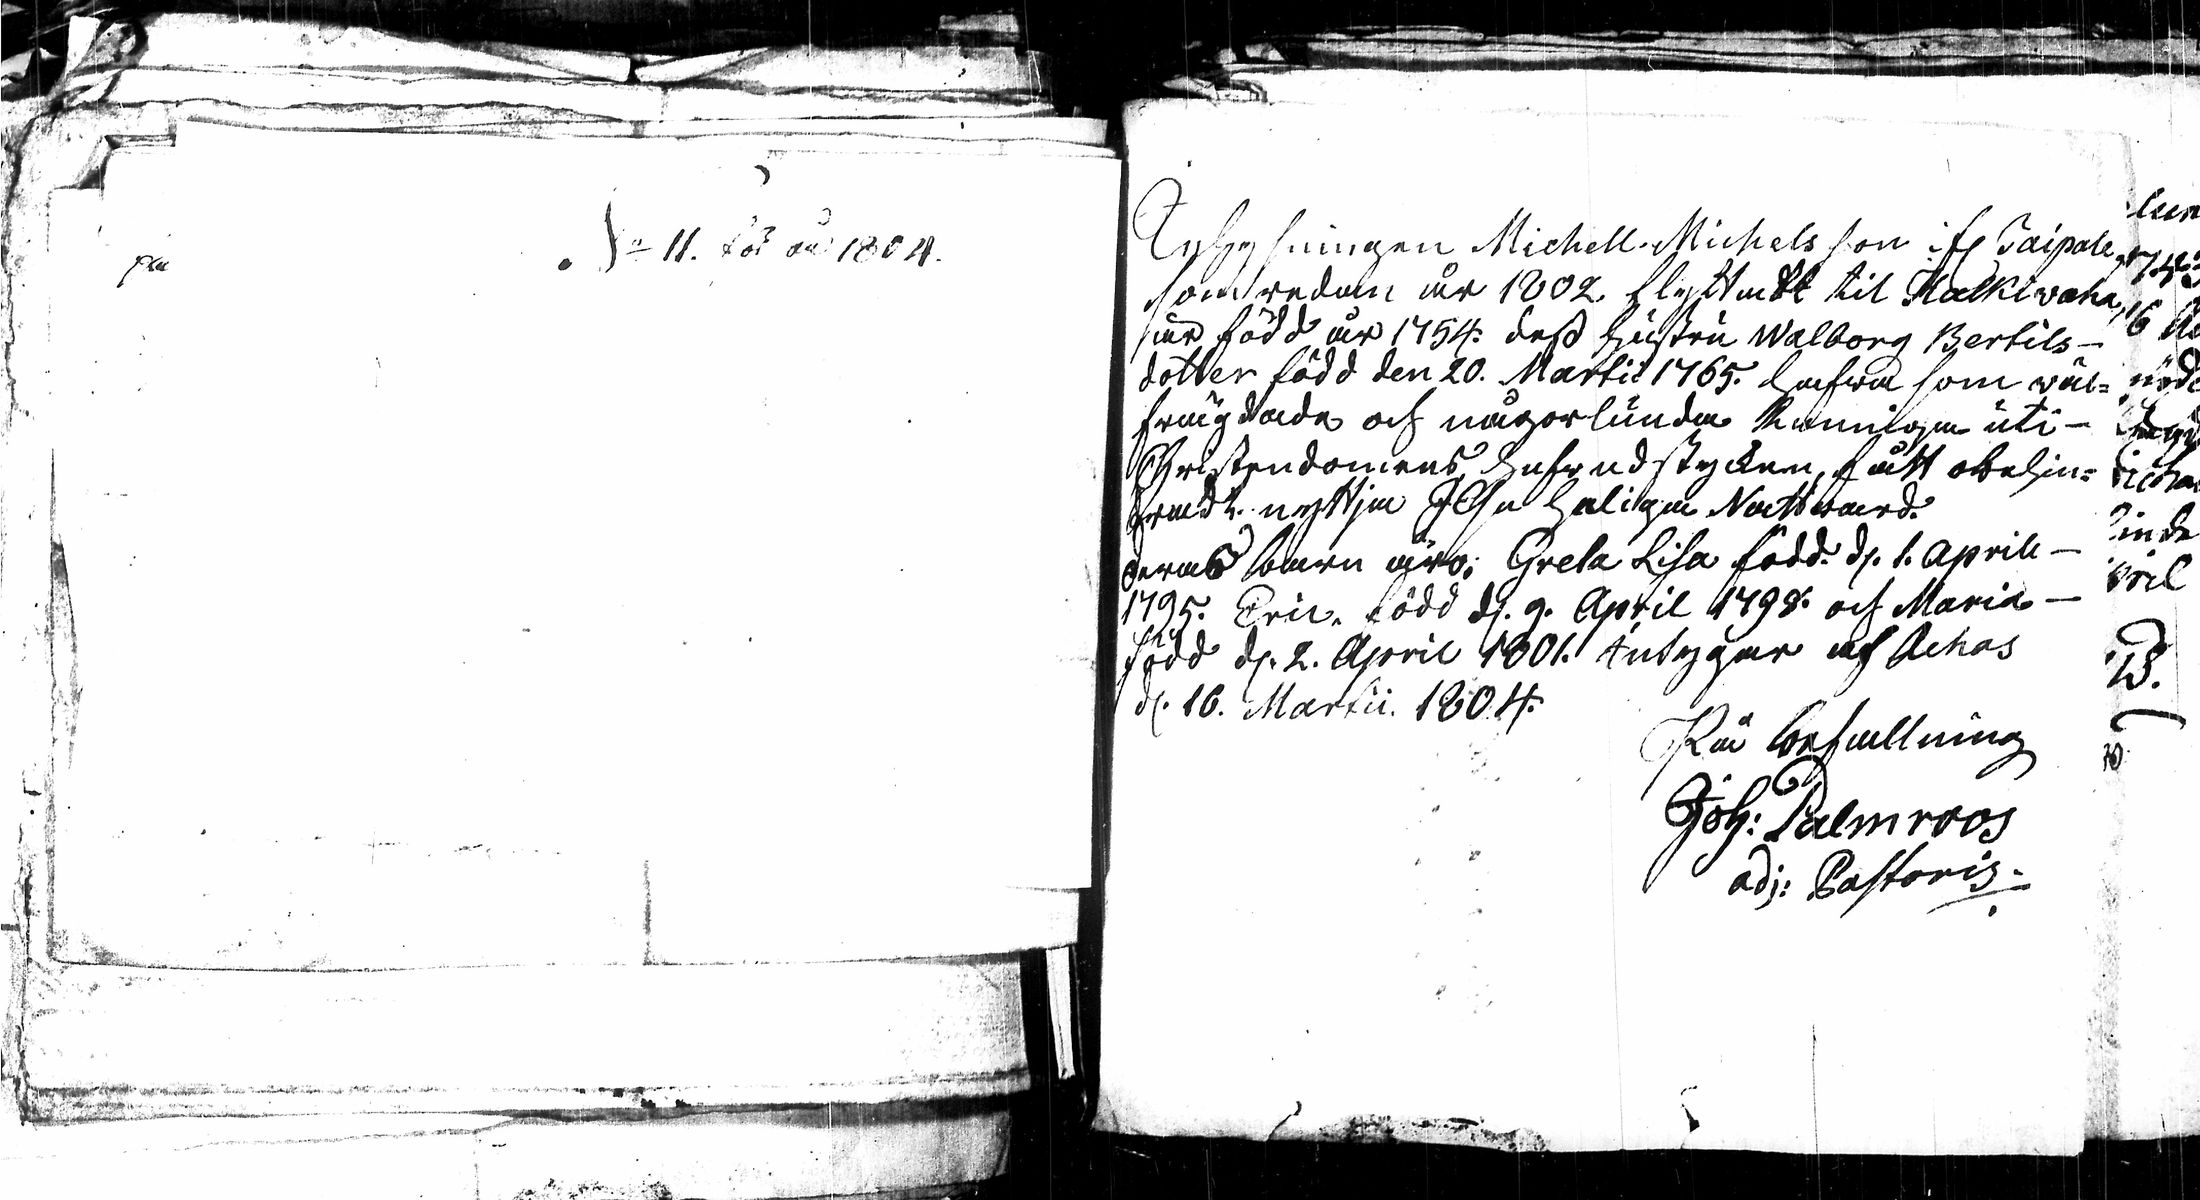 No 11. för år 1804.
Inhysningen Michell Michelsson ifr Taipale,
som redan år 1802. flyttadt til Kalkiwaha,
är född år 1754. dess Hustru Walborg Bertils-
dotter född den 20. Martii 1765. hafwa som wäl=
frägdade och någorlunda kunniga uti
Christendomens hufwudstycken, fått obehin=
dradt nyttja HErrens Heliga Nattward.
deras barn äro: Greta Lisa född d. 1. April
1795. Eric, född d. 9. April 1798. och Maria
född d. 2. April 1801. intygar af Achas
d. 16. Martii. 1804.
På befallning
Joh: Palmroos
adj: Pastoris.